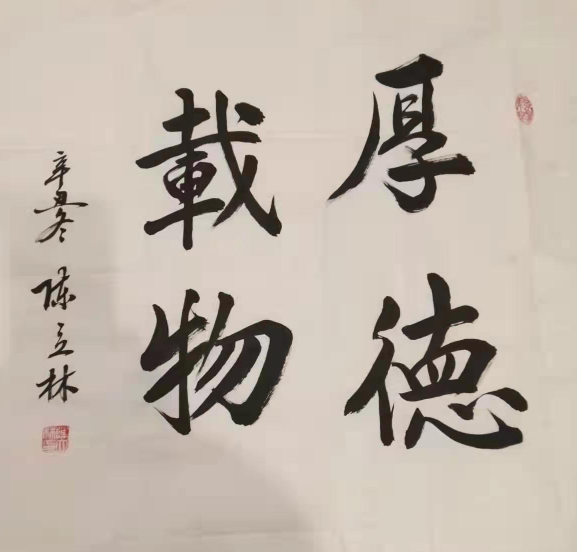 厚德
載物
辛丑冬 陈立林